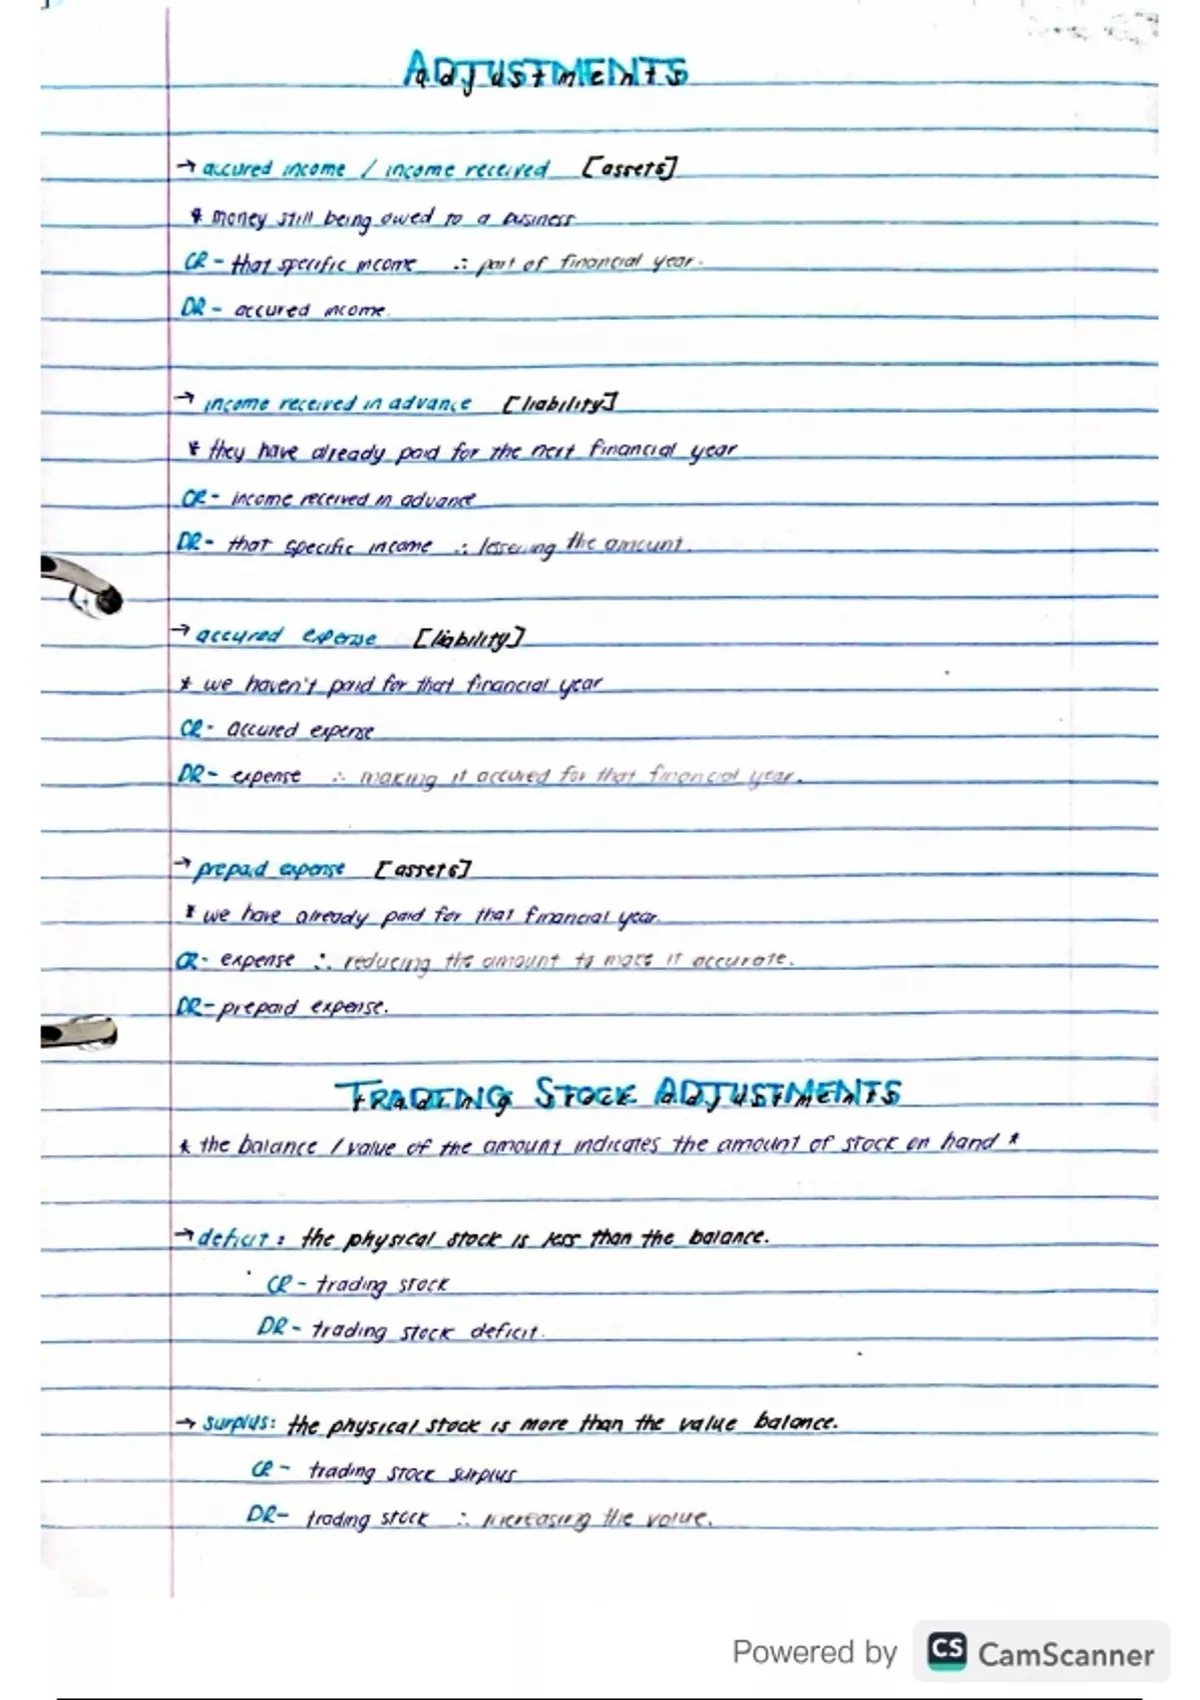 ADJUSTMENTS
→ accured income / income received [assets]
* money still being owed to a business
CR - that specific income ∴ part of financial year.
DR - accured income.
→ income received in advance [liability]
* they have already paid for the next financial year
CR - income received in advance
DR - that specific income ∴ lessening the amount.
→ accured expense [liability]
* we haven't paid for that financial year
CR - accured expense
DR - expense ∴ making it accured for that financial year.
→ prepaid expense [assets]
* we have already paid for that financial year.
CR - expense ∴ reducing the amount to make it accurate.
DR - prepaid expense.
TRADING STOCK ADJUSTMENTS
* the balance / value of the amount indicates the amount of stock on hand *
→ deficit : the physical stock is less than the balance.
CR - trading stock
DR - trading stock deficit.
→ surplus: the physical stock is more than the value balance.
CR - trading stock surplus
DR - trading stock ∴ increasing the value.
Powered by CS CamScanner